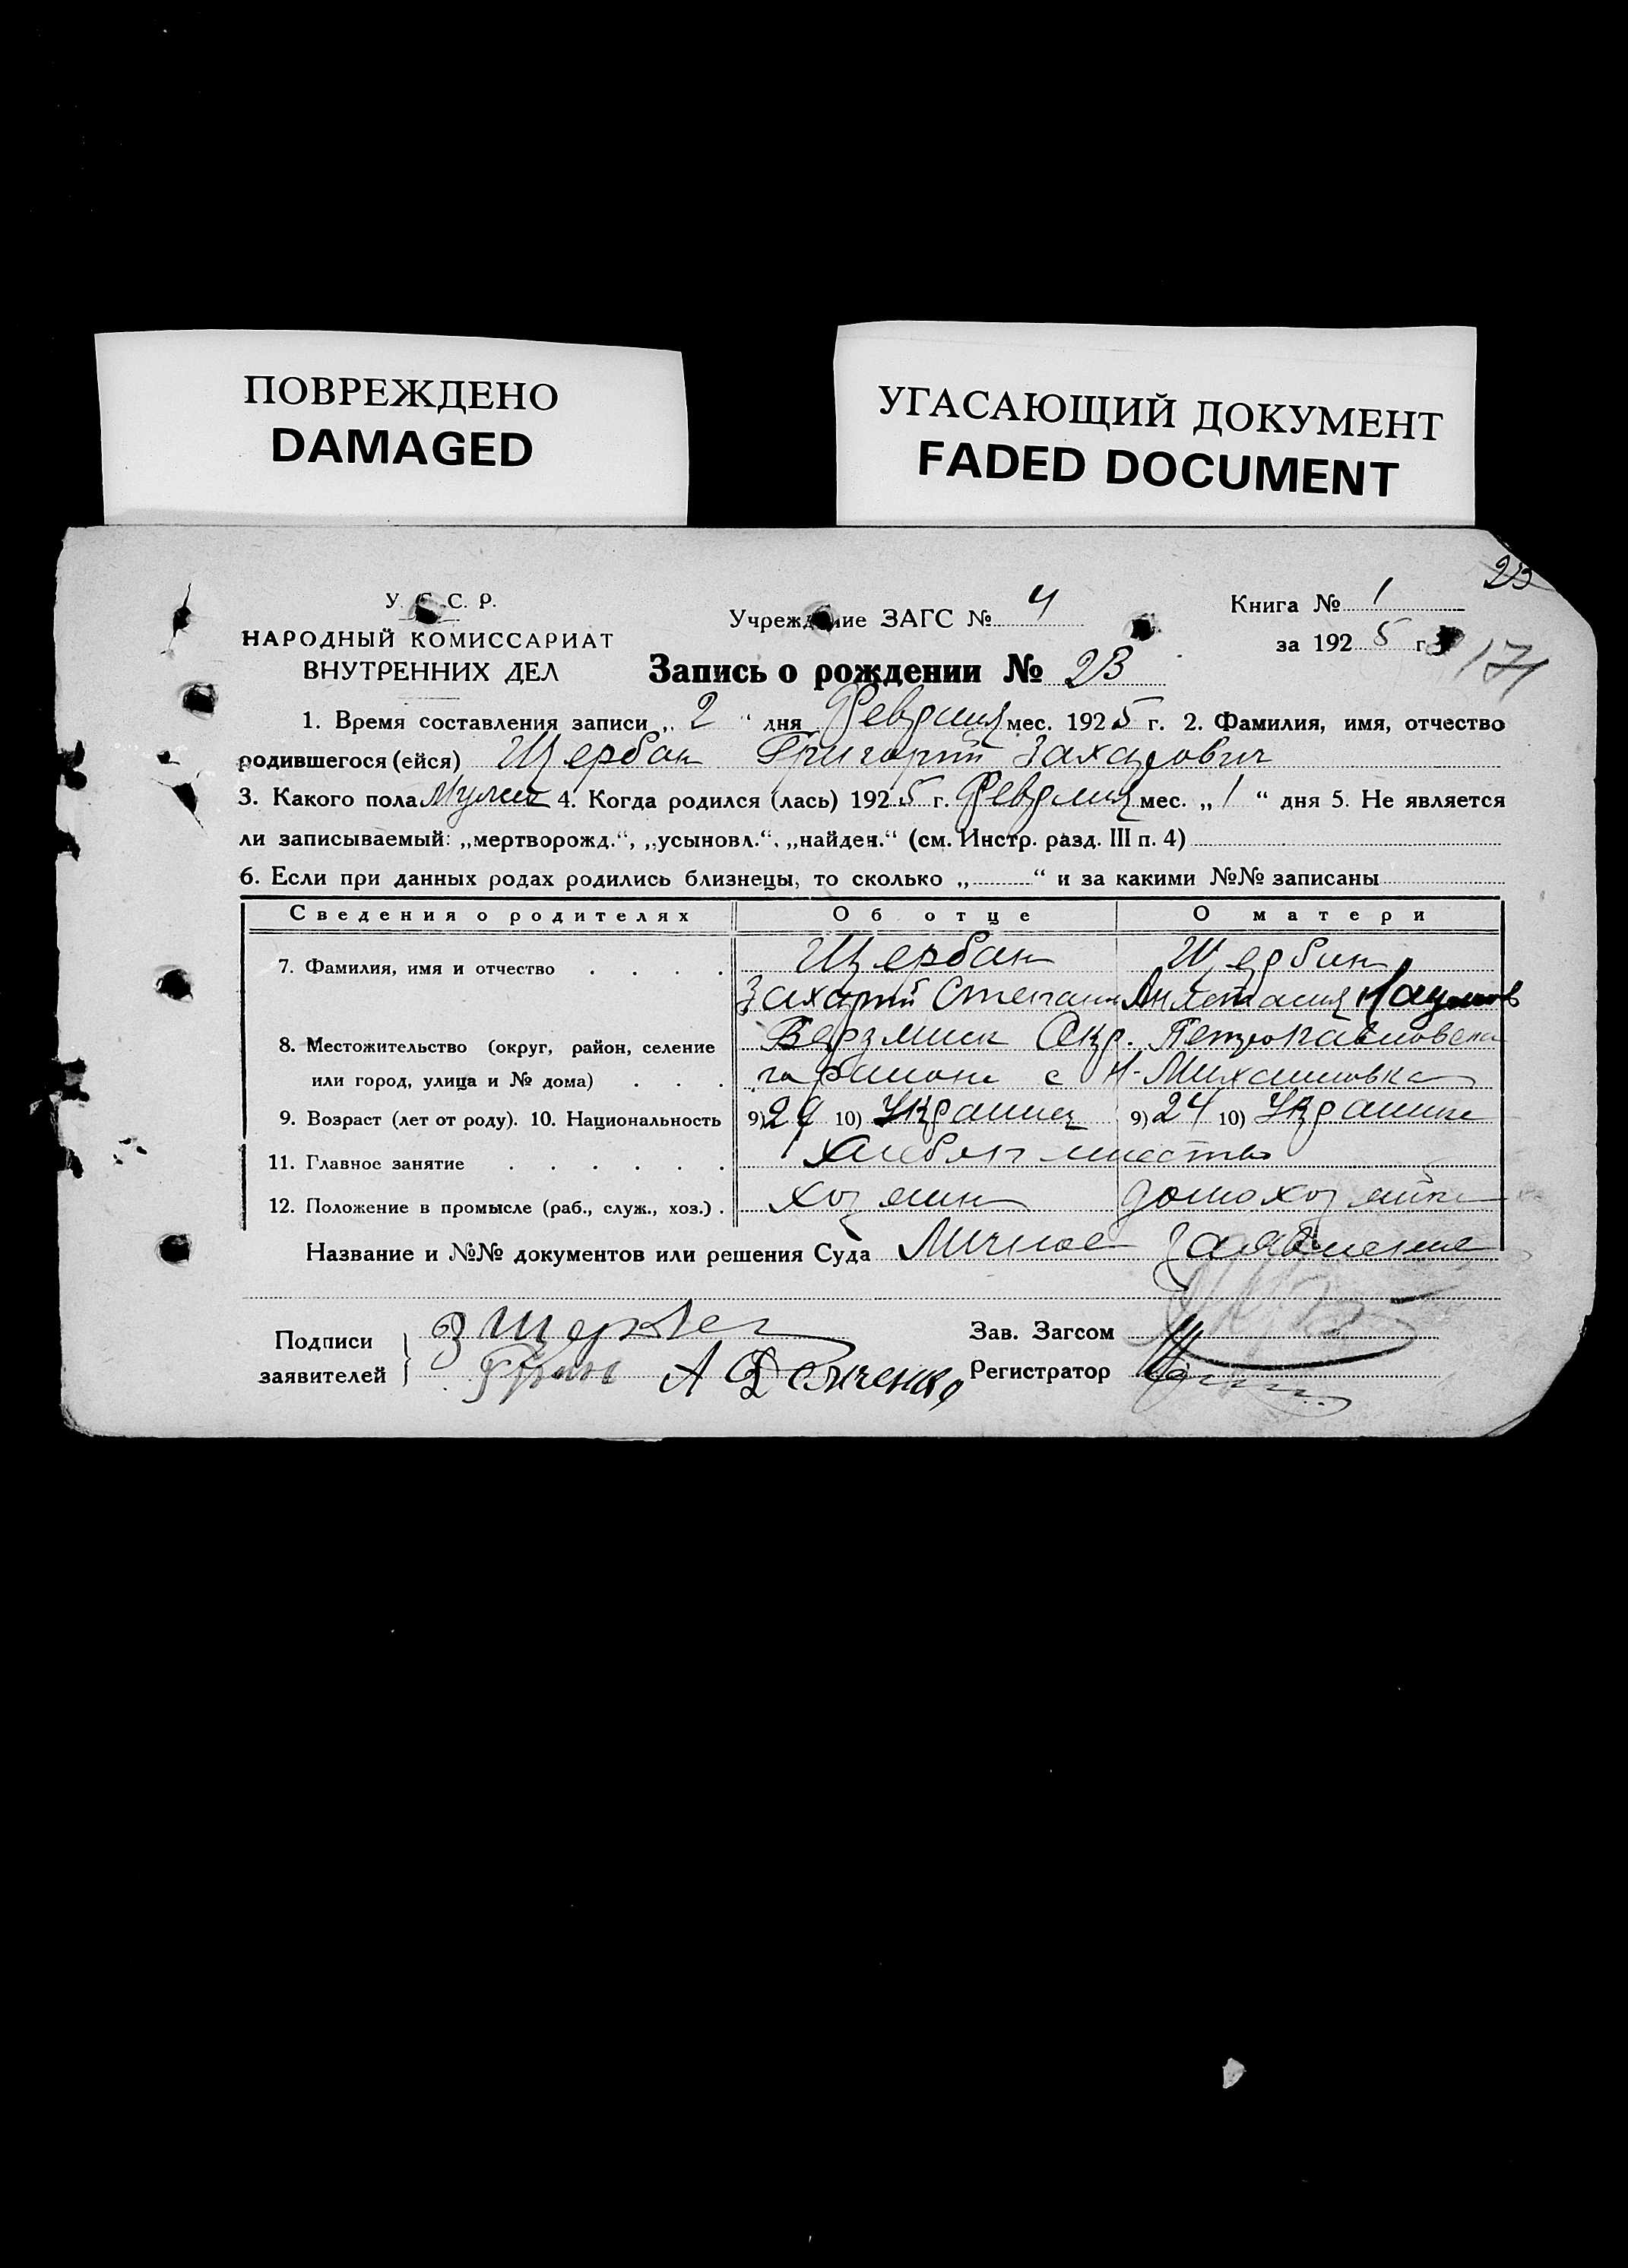 ПОВРЕЖДЕНО
DAMAGED
УГАСАЮЩИЙ ДОКУМЕНТ
FADED DOCUMENT
23
У. С. С. Р.
НАРОДНЫЙ КОМИССАРИАТ
ВНУТРЕННИХ ДЕЛ
Учреждение ЗАГС № 4
Книга № 1
за 1925 г.
174
Запись о рождении № 23
1. Время составления записи „ 2 “ дня Февраля мес. 1925 г. 2. Фамилия, имя, отчество
родившегося (ейся) Щербак Григорий Захарович
3. Какого пола Мужск 4. Когда родился (лась) 1925 г. Февраля мес. „ 1 “ дня 5. Не является
ли записываемый: „мертворожд.“, „усыновл.“, „найден.“ (см. Инстр. разд. III п. 4)
6. Если при данных родах родились близнецы, то сколько „ “ и за какими №№ записаны
Сведения о родителях Об отце О матери
7. Фамилия, имя и отчество Щербак Щербак
Захарий Степан Анастасия Наумов
8. Местожительство (округ, район, селение Бердянск Окр. Петропавловск
или город, улица и № дома) го района с Н-Михайловка
9. Возраст (лет от роду). 10. Национальность 9) 29 10) Украинец 9) 24 10) Украинка
11. Главное занятие Хлебопашество
12. Положение в промысле (раб., служ., хоз.) хозяин домохозяйка
Название и №№ документов или решения Суда Личное заявление
Подписи заявителей З Щербак
А Демченко
Зав. Загсом
Регистратор